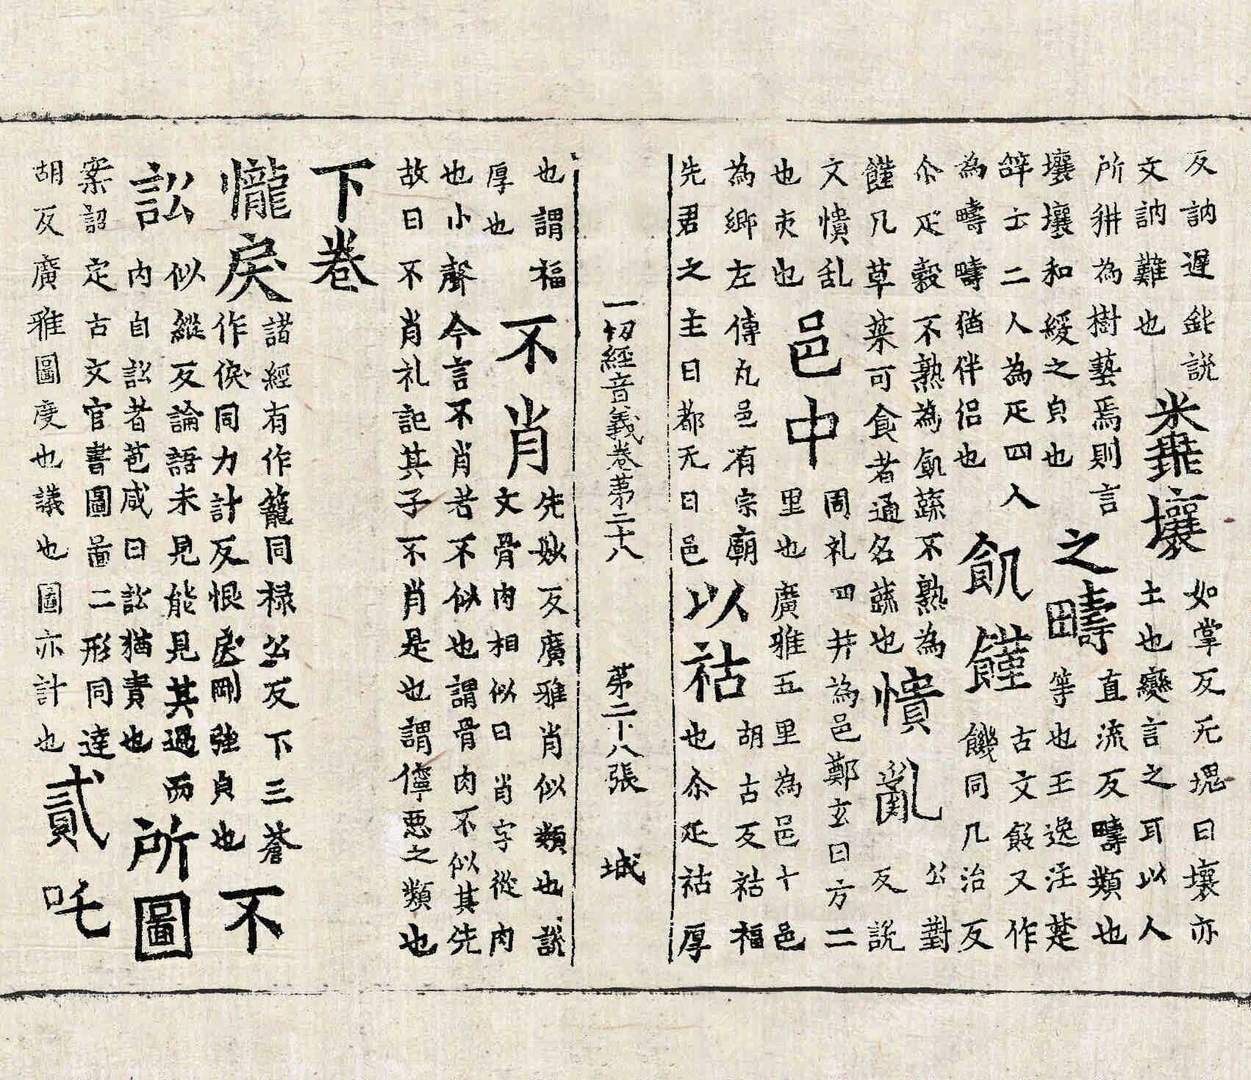 反訥遲鈍說
文訥難也
糞壤
如掌反无塊曰壤亦
土也變言之耳以人
所耕為樹藝焉則言
壤壤和緩之皃也
之疇
直流反疇類也
等也王逸注楚
辝云二人為疋四人
為疇疇猶伴侶也
飢饉
古文飢又作
饑同几治反
尒疋穀不熟為飢蔬不熟為
饉凡草菜可食者通名蔬也
憒亂
公對
反說
文憒乱
也夷也
邑中
周礼四井為邑鄭玄曰方二
里也廣雅五里為邑十邑
為鄉左傳凡邑有宗廟
先君之主曰都无曰邑
以祜
胡古反祜福
也尒疋祜厚
一切經音義卷第二十八 第二十八張 城
也謂福
厚也
不肖
先妙反廣雅肖似類也說
文骨肉相似曰肖字從肉
也小聲今言不肖者不似也謂骨肉不似其先
故曰不肖礼記其子不肖是也謂儜惡之類也
下卷
憹戾
諸經有作籠同祿公反下三蒼
作悷同力計反恨戾剛強皃也
不訟
似縱反論語未見能見其過而
內自訟者苞咸曰訟猶責也
所圖
案詔定古文官書圖啚二形同達
胡反廣雅圖度也議也圖亦計也
貳吒